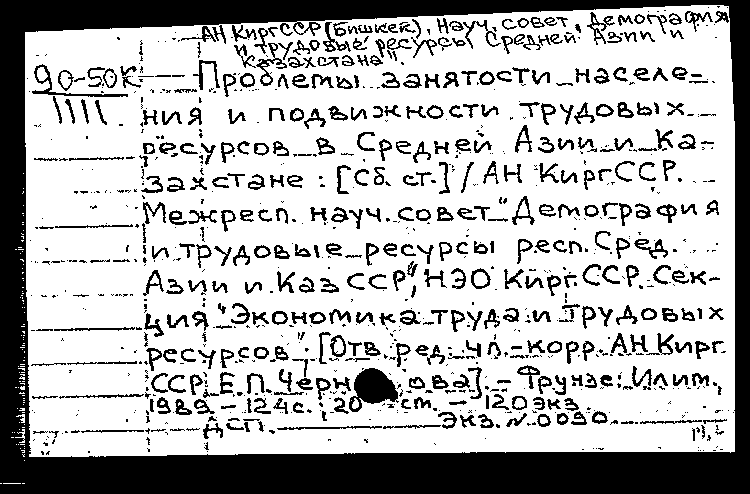 АН КиргССР (Бишкек), Науч. совет, Демография
и трудовые ресурсы Средней Азии и
Казахстана".
90-50К — Проблемы занятости населе-
1111 ния и подвижности трудовых
ресурсов в Средней Азии и Ка-
захстане : [Сб. ст.] / АН Кирг.ССР.
Межресп. науч. совет "Демография
и трудовые ресурсы респ. Сред.
Азии и Каз ССР", НЭО Кирг.ССР. Сек-
ция "Экономика труда и трудовых
ресурсов"; [Отв. ред. чл.-корр. АН Кирг
ССР Е.П. Черн ова]. – Фрунзе: Илим,
1989 – 124 с.; 20 ст. – 120 экз
ДСП. Экз. N 0090